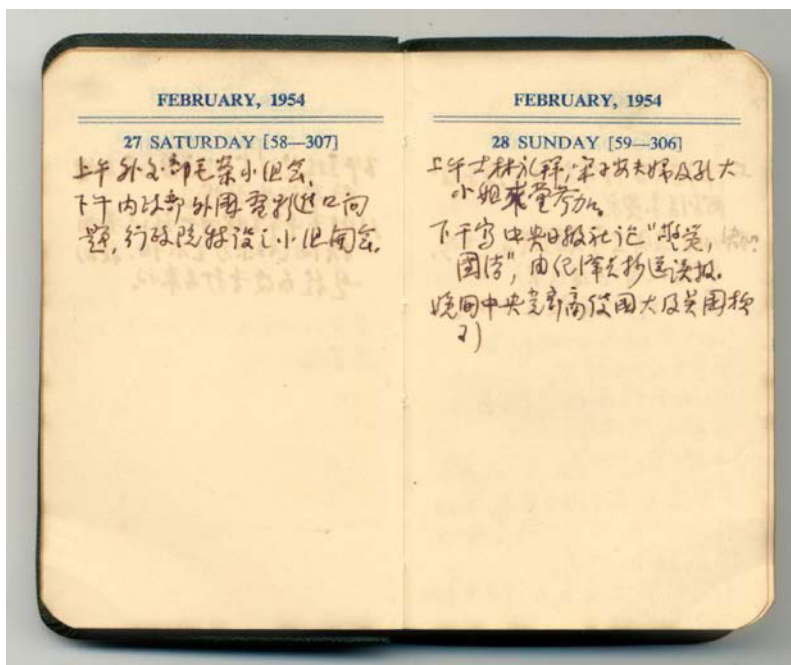 FEBRUARY, 1954
27 SATURDAY [58—307]
上午外交部毛案小组会.
下午内政部外國電影進口问
题,行政院特设之小组開会.
FEBRUARY, 1954
28 SUNDAY [59—306]
上午士林礼拜,宋子安夫婦及孔大
小姐來堂参加.
下午写中央日报社论"
國情",由 抄送该报.
晚 中央党部商谈國大及美國